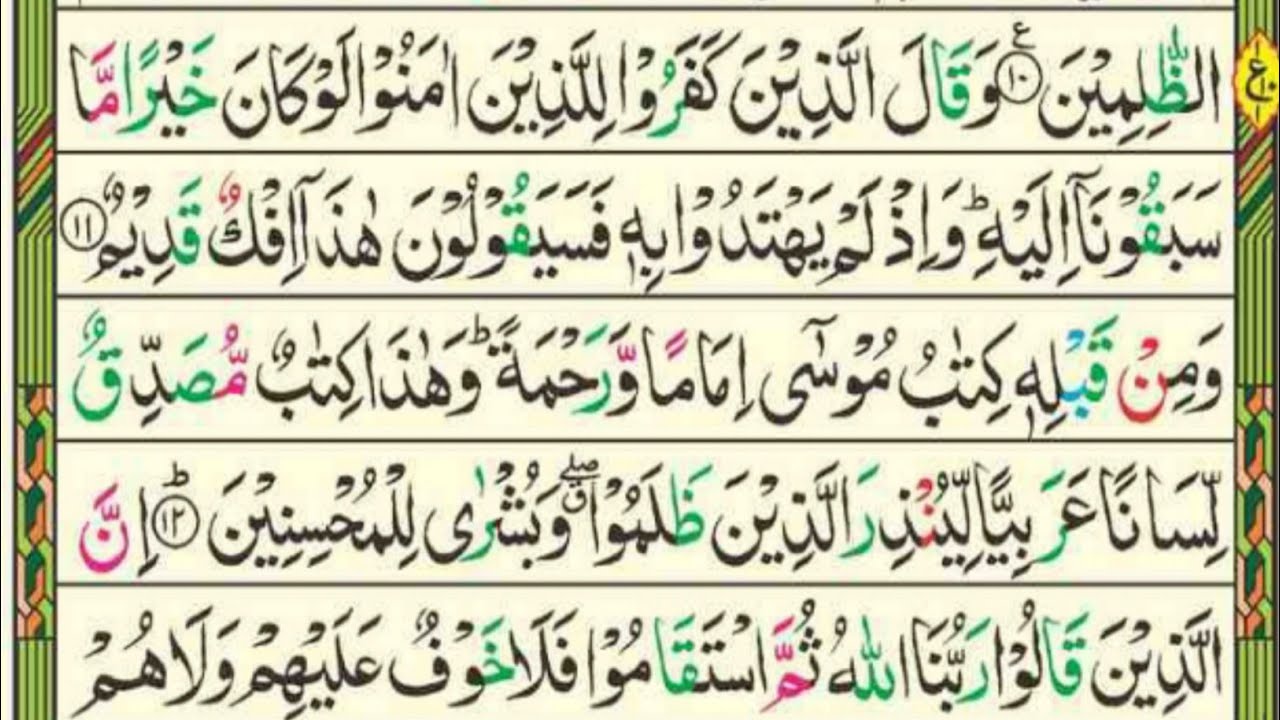 الظّٰلِمِيْنَ ۝١٠ ع وَقَالَ الَّذِيْنَ كَفَرُوْا لِلَّذِيْنَ اٰمَنُوْا لَوْ كَانَ خَيْرًا مَّا
سَبَقُوْنَاۤ اِلَيْهِ ؕ وَاِذْ لَمْ يَهْتَدُوْا بِهٖ فَسَيَقُوْلُوْنَ هٰذَاۤ اِفْكٌ قَدِيْمٌ ۝١١
وَمِنْ قَبْلِهٖ كِتٰبُ مُوْسٰۤى اِمَامًا وَّرَحْمَةً ؕ وَهٰذَا كِتٰبٌ مُّصَدِّقٌ
لِّسَانًا عَرَبِيًّا لِّيُنْذِرَ الَّذِيْنَ ظَلَمُوْا ۖق وَبُشْرٰى لِلْمُحْسِنِيْنَ ۝١٢ؕ اِنَّ
الَّذِيْنَ قَالُوْا رَبُّنَا اللّٰهُ ثُمَّ اسْتَقَامُوْا فَلَا خَوْفٌ عَلَيْهِمْ وَلَا هُمْ